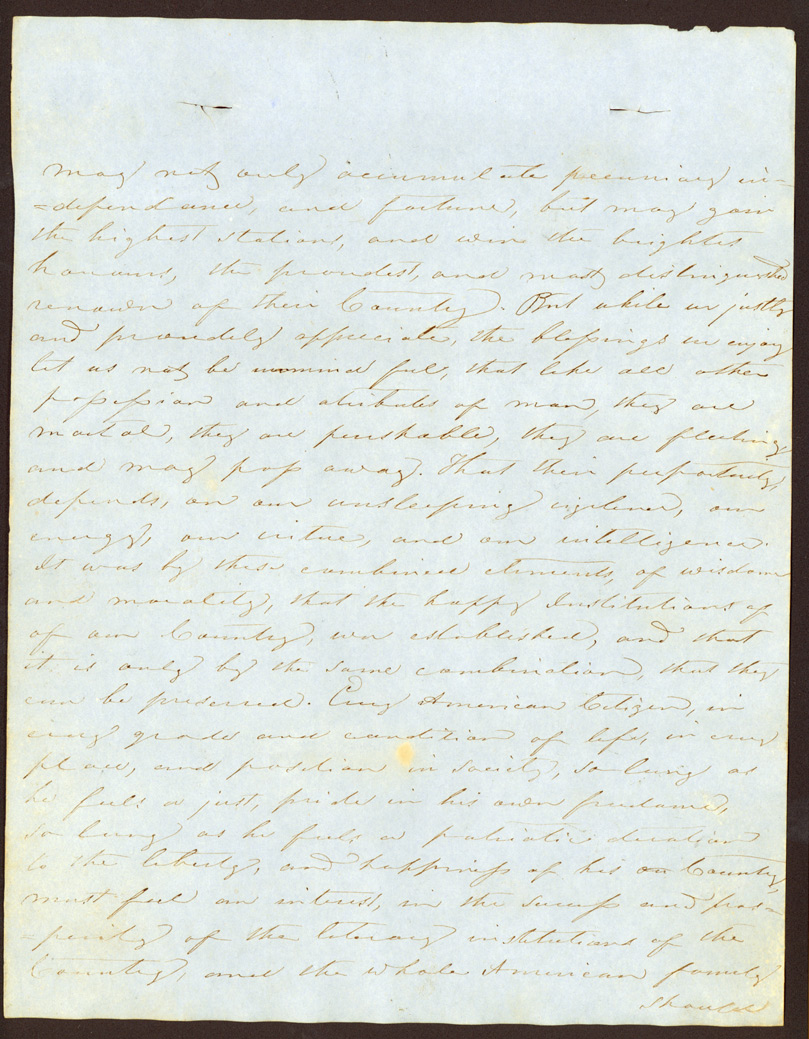 may not only accumulate pecuniary in=
=dependance, and fortune, but may gain
the highest stations, and win the brightes
honours, the proudest, and most distinguished
renown of their Country. But while we justly
and proudely appreciate, the blessings we enjoy
let us not be unmind ful, that like all other
possession and atributes of man, they are
mortal, they are perishable, they are fleeting
and may pass away. That their perpetuity,
depends, on our unsleeping vigilence, our
energy, our virtue, and our intelligence.
It was by these combined elements, of wisdom
and morality, that the happy Institutions of
of our Country, were established, and that
it is only by the same combination, that they
can be preserved. Every American Citizen, in
every grade and condition of life, in every
place, and position in society, so long as
he feels a just, pride in his own freedome,
so long as he feels a patriotic devotion
to the liberty, and happiness of his Country,
must feel an interest, in the success and pros=
=perity of the literary institutions of the
Country, and the whole American family
should